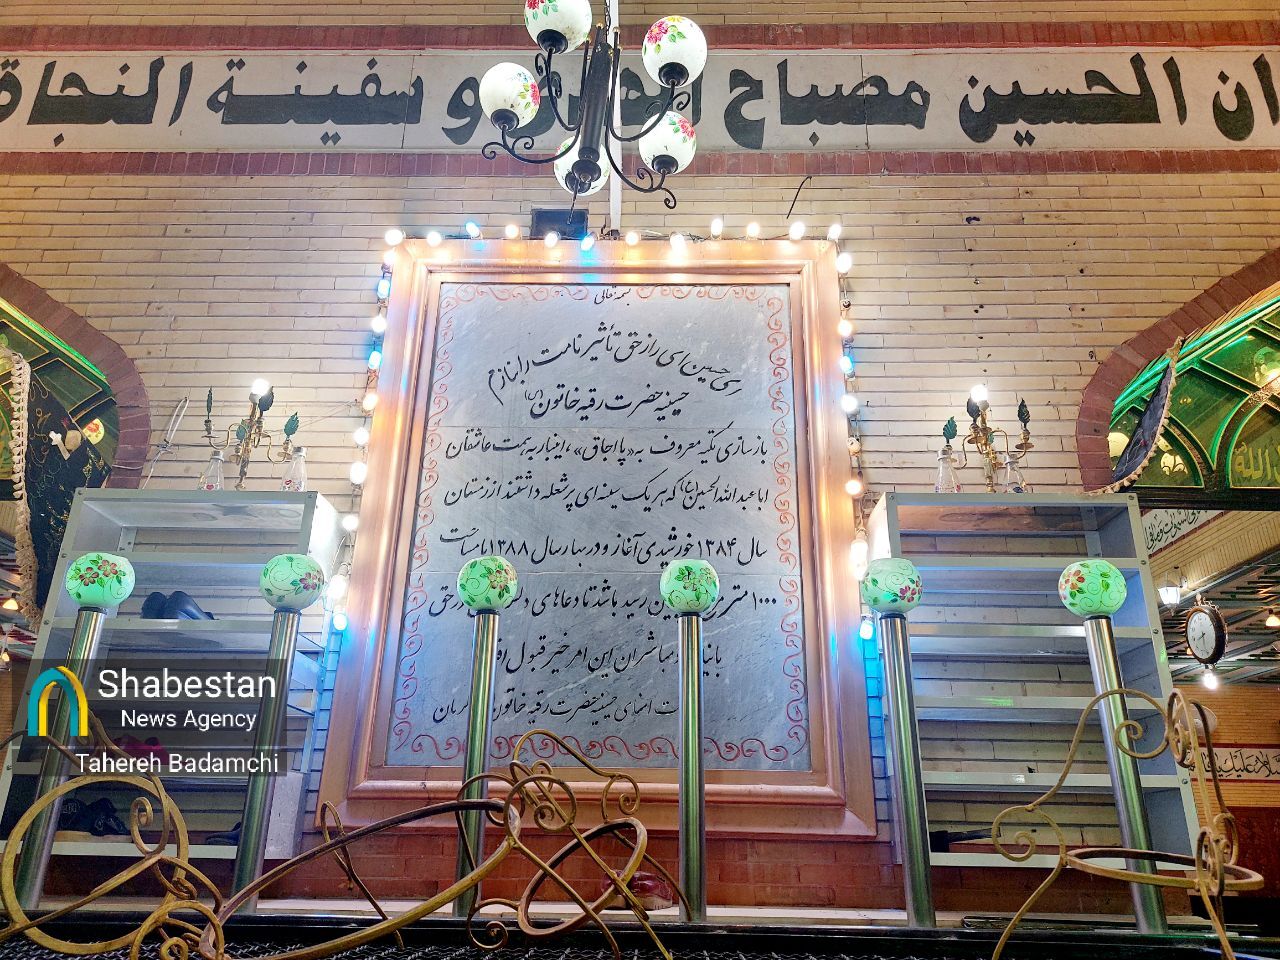 ان الحسین مصباح الهدی و سفینة النجاة
بسمه تعالی
حسین ای راز حق تأثیر نامت را بنازم
حسینیه حضرت رقیه خاتون (س)
بازسازی تکیه معروف به «پا اجاق»، اینبار به همت عاشقان
ابا عبدالله الحسین (ع) که هر یک سینه ای پر شعله داشتند از زمستان
سال ۱۳۸۴ خورشیدی آغاز و در بهار سال ۱۳۸۸ با مساحت
۱۰۰۰ متر رسید باشد تا دعاهای در حق
مباشران این امر خیر قبول
امنای حسینیه حضرت رقیه خاتون
Shabestan
News Agency
Tahereh Badamchi